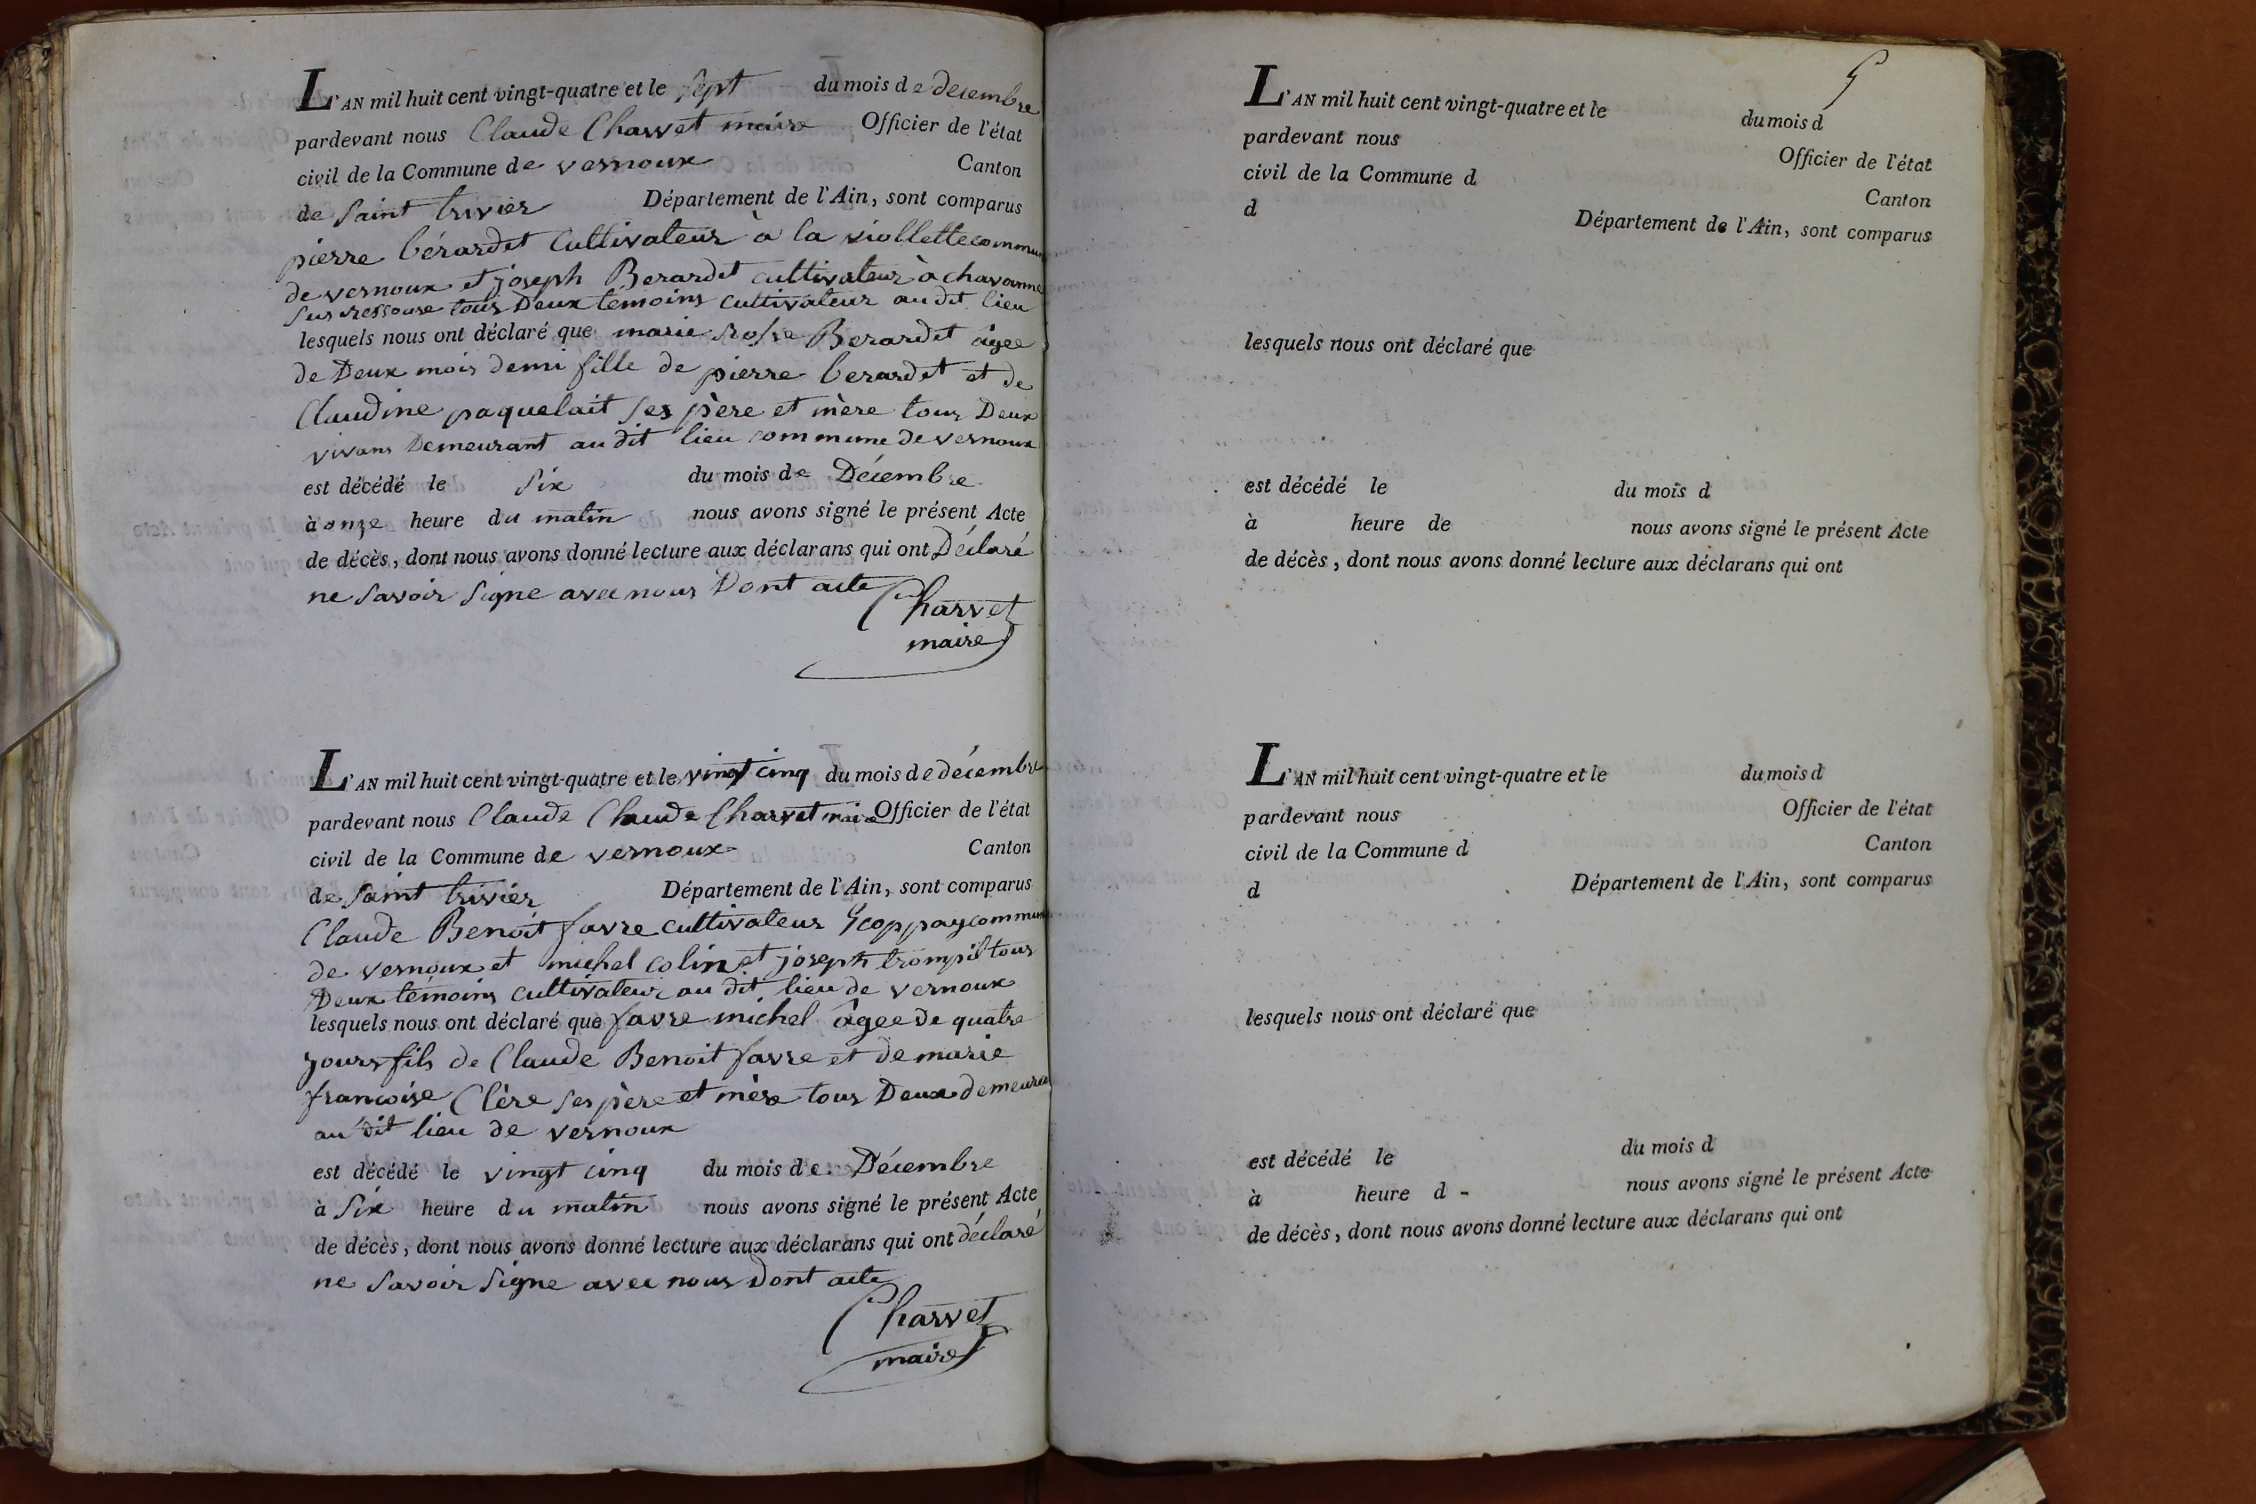 L'AN mil huit cent vingt-quatre et le sept du mois de decembre
pardevant nous Claude Charvet maire Officier de l'état
civil de la Commune de vernoux Canton
de saint trivier Département de l'Ain, sont comparus
pierre bérardet Cultivateur à la viollette commune
de vernoux et joseph Berardet cultivateur à chavanne
sur ressouse tous Deux témoins cultivateur au dit lieu
lesquels nous ont déclaré que marie rosse Berardet âgee
de Deux mois demi fille de pierre berardet et de
Claudine paquelait ses père et mère tous Deux
vivans Demeurant au dit lieu commune de vernoux
est décédé le Six du mois de Décembre
à onze heure du matin nous avons signé le présent Acte
de décès, dont nous avons donné lecture aux déclarans qui ont Déclaré
ne savoir signe avec nous Dont acte
Charvet
maire
L'AN mil huit cent vingt-quatre et le vingt cinq du mois de décembre
pardevant nous Claude Claude Charvet maire Officier de l'état
civil de la Commune de vernoux Canton
de saint trivier Département de l'Ain, sont comparus
Claude Benoit favre cultivateur commune
de vernoux et michel colin et joseph trompil tous
Deux témoins cultivateur au dit lieu de vernoux
lesquels nous ont déclaré que favre michel âgee de quatre
jours fils de Claude Benoit favre et de marie
francoise Clère ses père et mère tous Deux demeure
au dit lieu de vernoux
est décédé le vingt cinq du mois de Décembre
à Six heure du matin nous avons signé le présent Acte
de décès, dont nous avons donné lecture aux déclarans qui ont déclaré
ne savoir signe avec nous Dont acte
Charvet
maire
L'AN mil huit cent vingt-quatre et le du mois d
pardevant nous Officier de l'état
civil de la Commune d Canton
d Département de l'Ain, sont comparus
lesquels nous ont déclaré que
est décédé le du mois d
à heure de nous avons signé le présent Acte
de décès, dont nous avons donné lecture aux déclarans qui ont
L'AN mil huit cent vingt-quatre et le du mois d
pardevant nous Officier de l'état
civil de la Commune d Canton
d Département de l'Ain, sont comparus
lesquels nous ont déclaré que
est décédé le du mois d
à heure d - nous avons signé le présent Acte
de décès, dont nous avons donné lecture aux déclarans qui ont